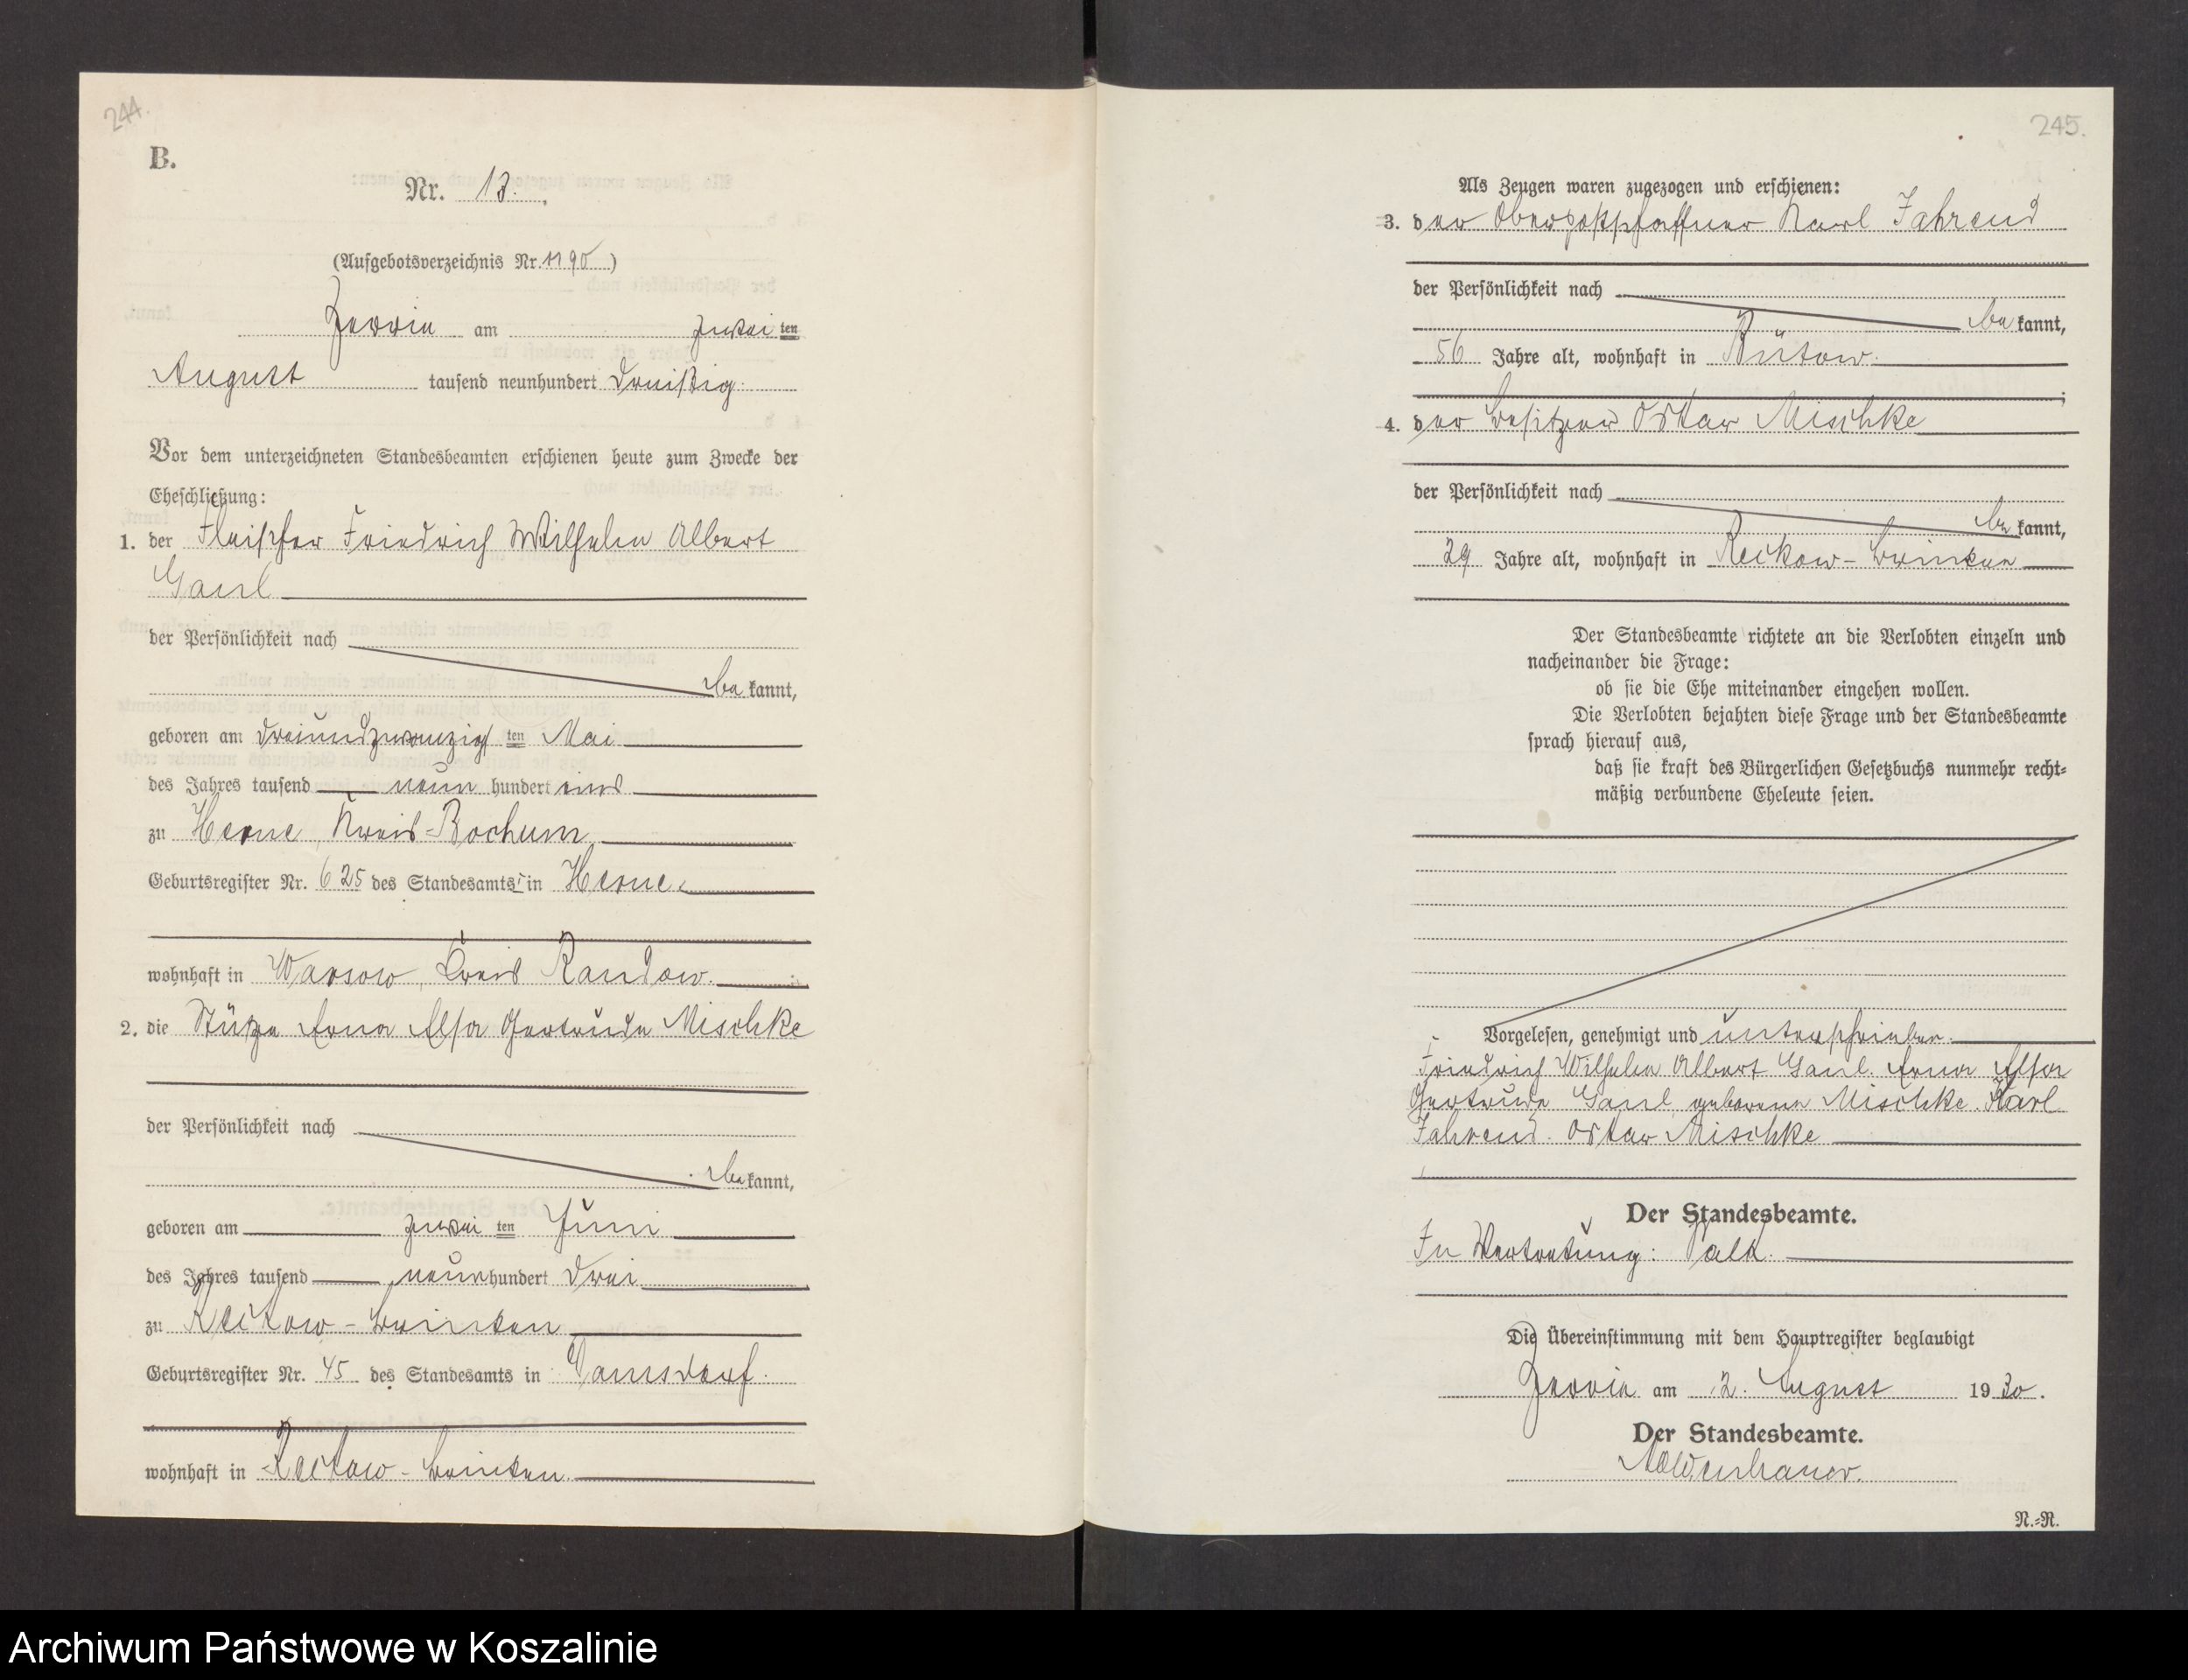 244.
B.
Nr. 13.
(Aufgebotsverzeichnis Nr. 1190)
Zerrin am zweiten
August tausend neunhundert dreißig.
Vor dem unterzeichneten Standesbeamten erschienen heute zum Zwecke der
Eheschließung:
1. der Fleischer Friedrich Wilhelm Albert
Gaul
der Persönlichkeit nach
bekannt,
geboren am dreiundzwanzigsten Mai
des Jahres tausend neun hundert eins
zu Herne, Kreis Bochum
Geburtsregister Nr. 625 des Standesamts I in Herne.
wohnhaft in Warsow, Kreis Randow.
2. die Stütze Erna Elsa Gertrude Mischke
der Persönlichkeit nach
bekannt,
geboren am zweiten Juni
des Jahres tausend neun hundert drei
zu Reckow-Brinken
Geburtsregister Nr. 45 des Standesamts in Damsdorf.
wohnhaft in Reckow-Brinken.
245.
Als Zeugen waren zugezogen und erschienen:
3. der Oberpostschaffner Karl Fahrend
der Persönlichkeit nach
bekannt,
56 Jahre alt, wohnhaft in Bütow.
4. der Besitzer Oskar Mischke
der Persönlichkeit nach
bekannt,
29 Jahre alt, wohnhaft in Reckow-Brinken
Der Standesbeamte richtete an die Verlobten einzeln und
nacheinander die Frage:
ob sie die Ehe miteinander eingehen wollen.
Die Verlobten bejahten diese Frage und der Standesbeamte
sprach hierauf aus,
daß sie kraft des Bürgerlichen Gesetzbuchs nunmehr recht-
mäßig verbundene Eheleute seien.
Vorgelesen, genehmigt und unterschrieben.
Friedrich Wilhelm Albert Gaul. Erna Elsa
Gertrude Gaul geborene Mischke. Karl
Fahrend. Oskar Mischke
Der Standesbeamte.
In Vertretung:
Die Übereinstimmung mit dem Hauptregister beglaubigt
Zerrin am 2. August 1930.
Der Standesbeamte.
Moldenhauer.
N.-R.
Archiwum Państwowe w Koszalinie